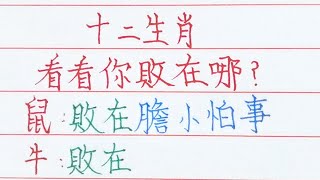 十二生肖
看看你敗在哪？
鼠：敗在膽小怕事
牛：敗在